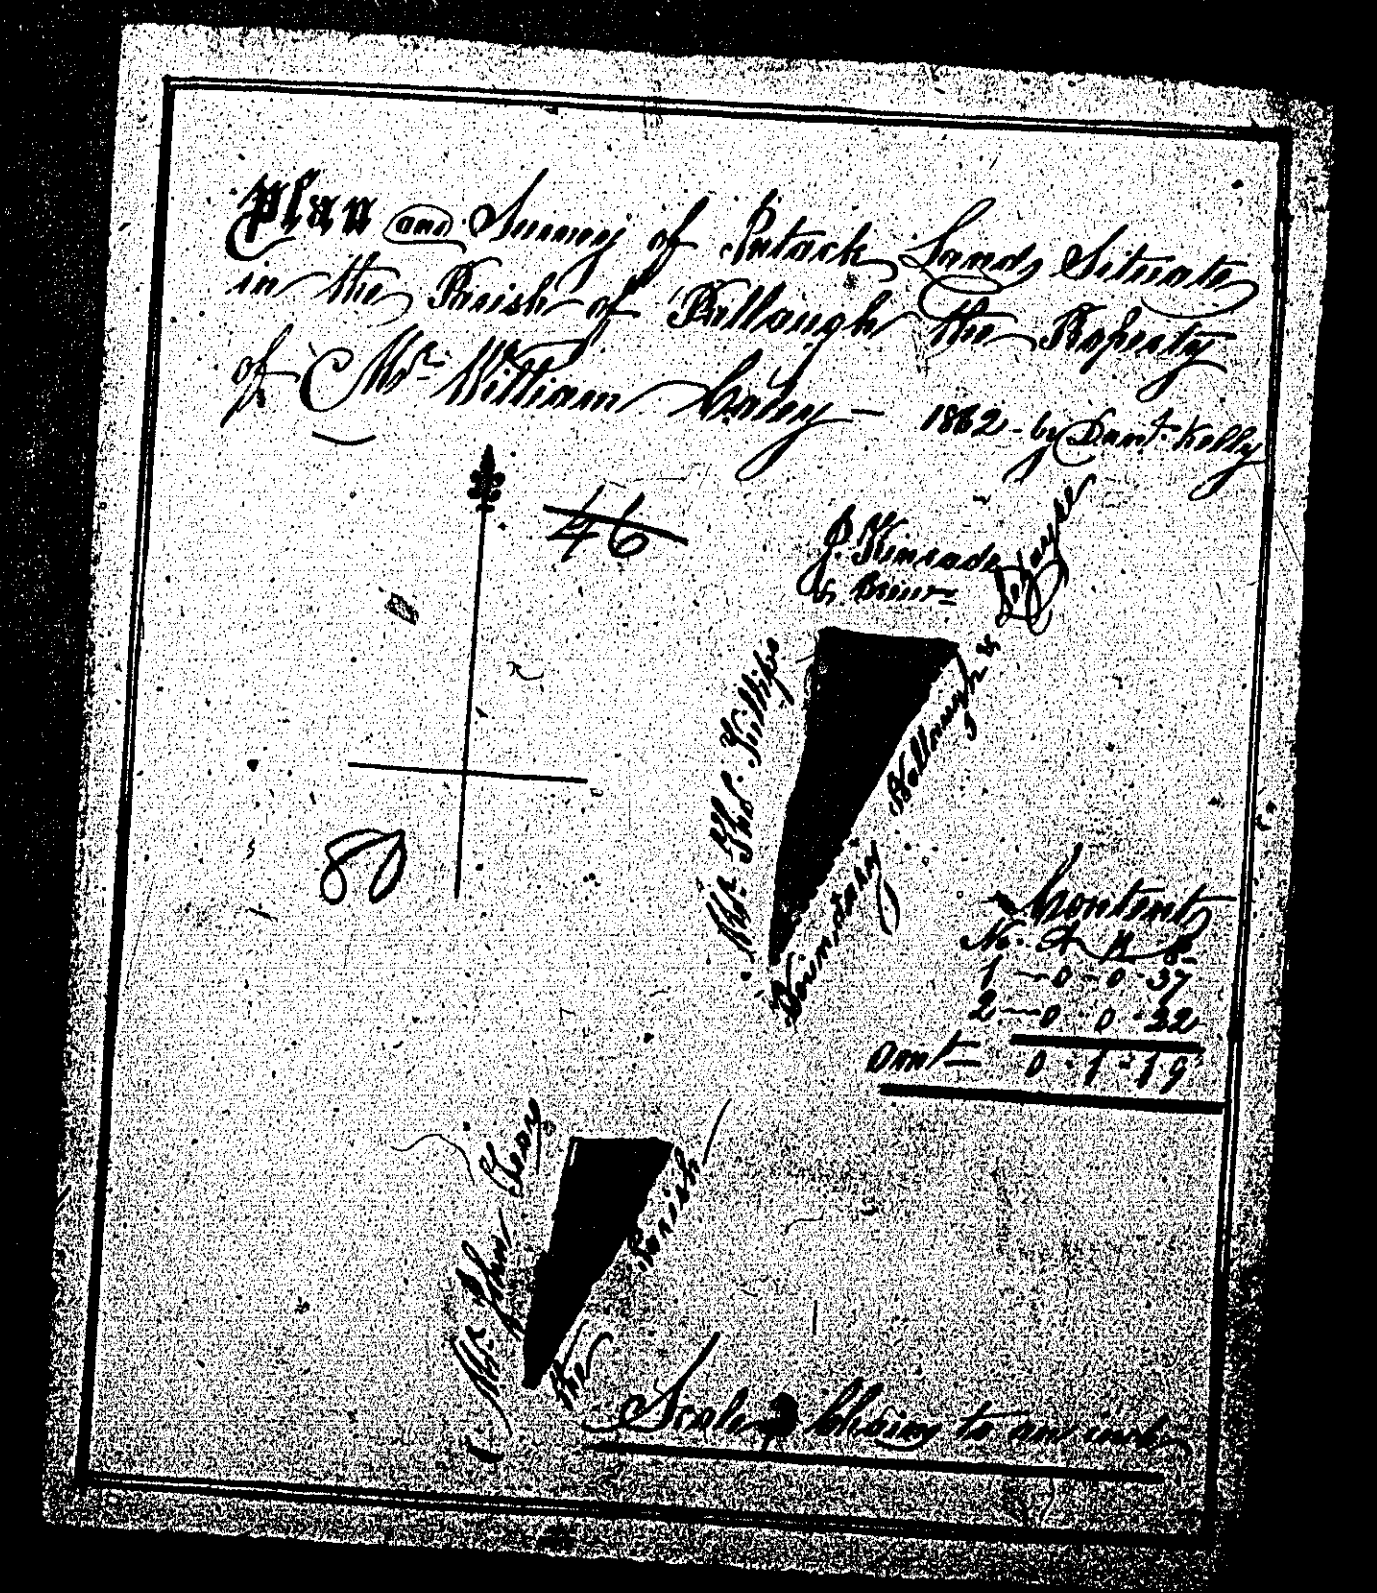 Plan and Survey of Intack Lands Situate
in the Parish of Ballaugh the Property
of Mr. William Caley — 1862 - by Danl. Kelly
46
J. Kinrade
Mr. Thos. Killip
Boundary Ballaugh &
80
Content
No. A R P
1 — 0 - 0 - 37
2 — 0 - 0 - 22
Amt = 0 - 1 - 19
Mr. John
the Parish
Scale 2 Chains to an inch